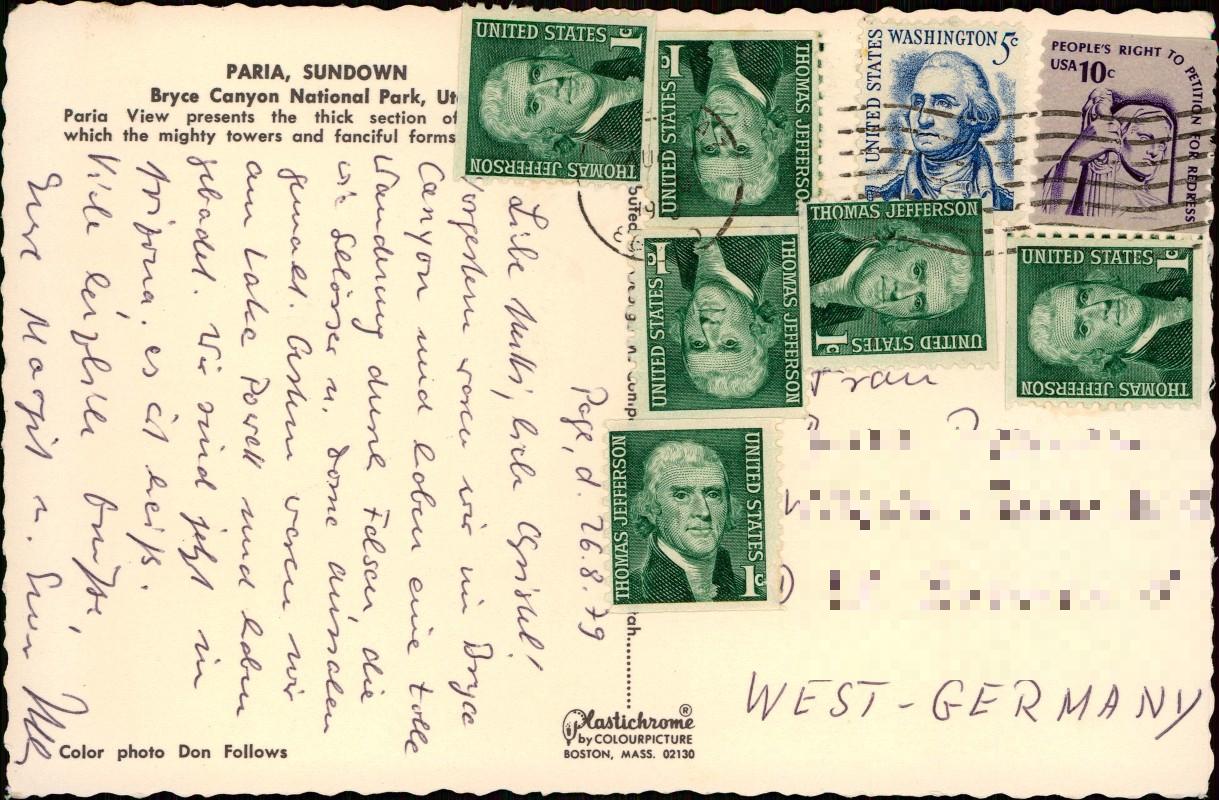 PARIA, SUNDOWN
Bryce Canyon National Park, Ut
Paria View presents the thick section of
which the mighty towers and fanciful forms
UNITED STATES 1c
THOMAS JEFFERSON
UNITED STATES 1c
THOMAS JEFFERSON
UNITED STATES WASHINGTON 5c
PEOPLE'S RIGHT TO PETITION FOR REDRESS
USA 10c
THOMAS JEFFERSON
1c UNITED STATES
UNITED STATES 1c
THOMAS JEFFERSON
UNITED STATES 1c
THOMAS JEFFERSON
THOMAS JEFFERSON
UNITED STATES 1c
Page, d. 26.8.79
Liebe Mutti, liebe Christel!
Vorgestern waren wir im Bryce
Canyon und haben eine tolle
Wanderung durch Felsen, die
wie Schlösser u. Dome aussahen
gemacht. Gestern waren wir
am Lake Powell und haben
gebadet. Wir sind jetzt in
Arizona. es ist heiß.
Viele herzliche Grüße,
Eure Margit u. Euer
Frau
WEST-GERMANY
ah
Plastichrome ®
by COLOURPICTURE
BOSTON, MASS. 02130
Color photo Don Follows